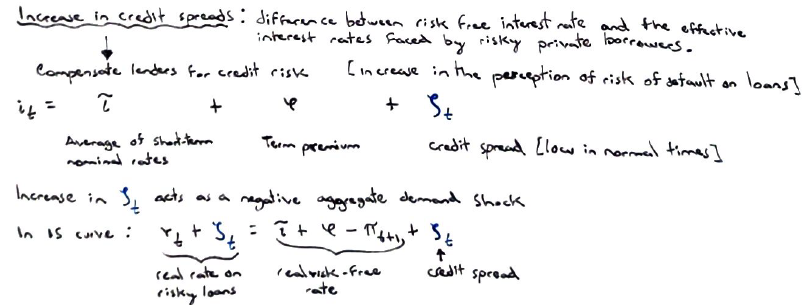 Increase in credit spreads: difference between risk free interest rate and the effective
interest rates faced by risky private borrowers.
Compensate lenders for credit risk [increase in the perception of risk of default on loans]
i_t = ĩ + φ + ζ_t
Average of short-term nominal rates Term premium credit spread [low in normal times]
Increase in ζ_t acts as a negative aggregate demand shock
In IS curve: r_t + ζ_t = ĩ + φ - π_{t+1} + ζ_t
real rate on risky loans real risk-free rate credit spread